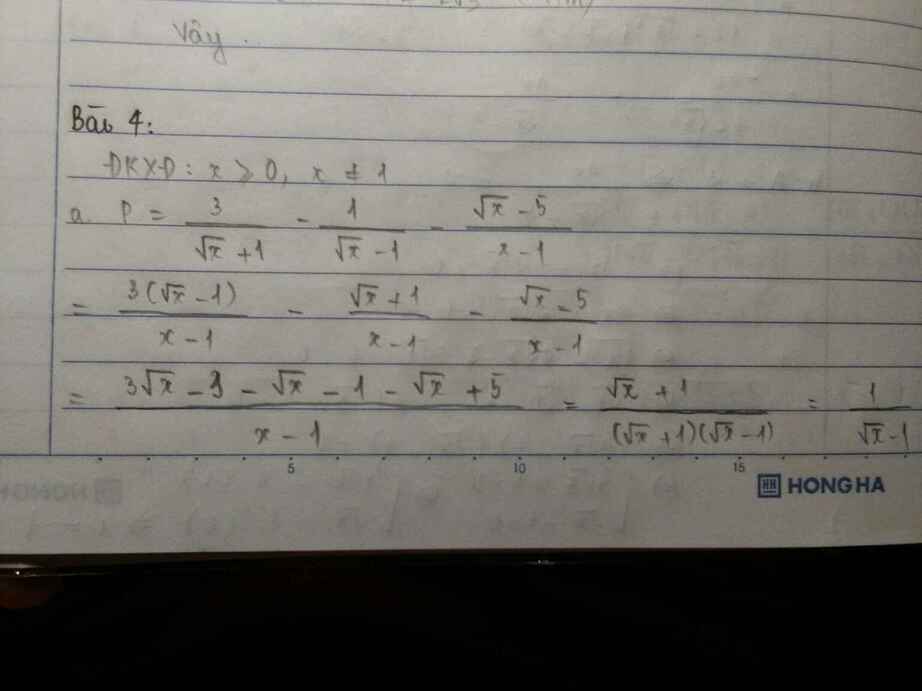 Vậy ..
Bài 4:
ĐKXĐ: x ⩾ 0, x ≠ 1
a. P = 3/(√x + 1) - 1/(√x - 1) - (√x - 5)/(x - 1)
= 3(√x - 1)/(x - 1) - (√x + 1)/(x - 1) - (√x - 5)/(x - 1)
= (3√x - 3 - √x - 1 - √x + 5)/(x - 1) = (√x + 1)/((√x + 1)(√x - 1)) = 1/(√x - 1)
5 10 15
HH HONG HA